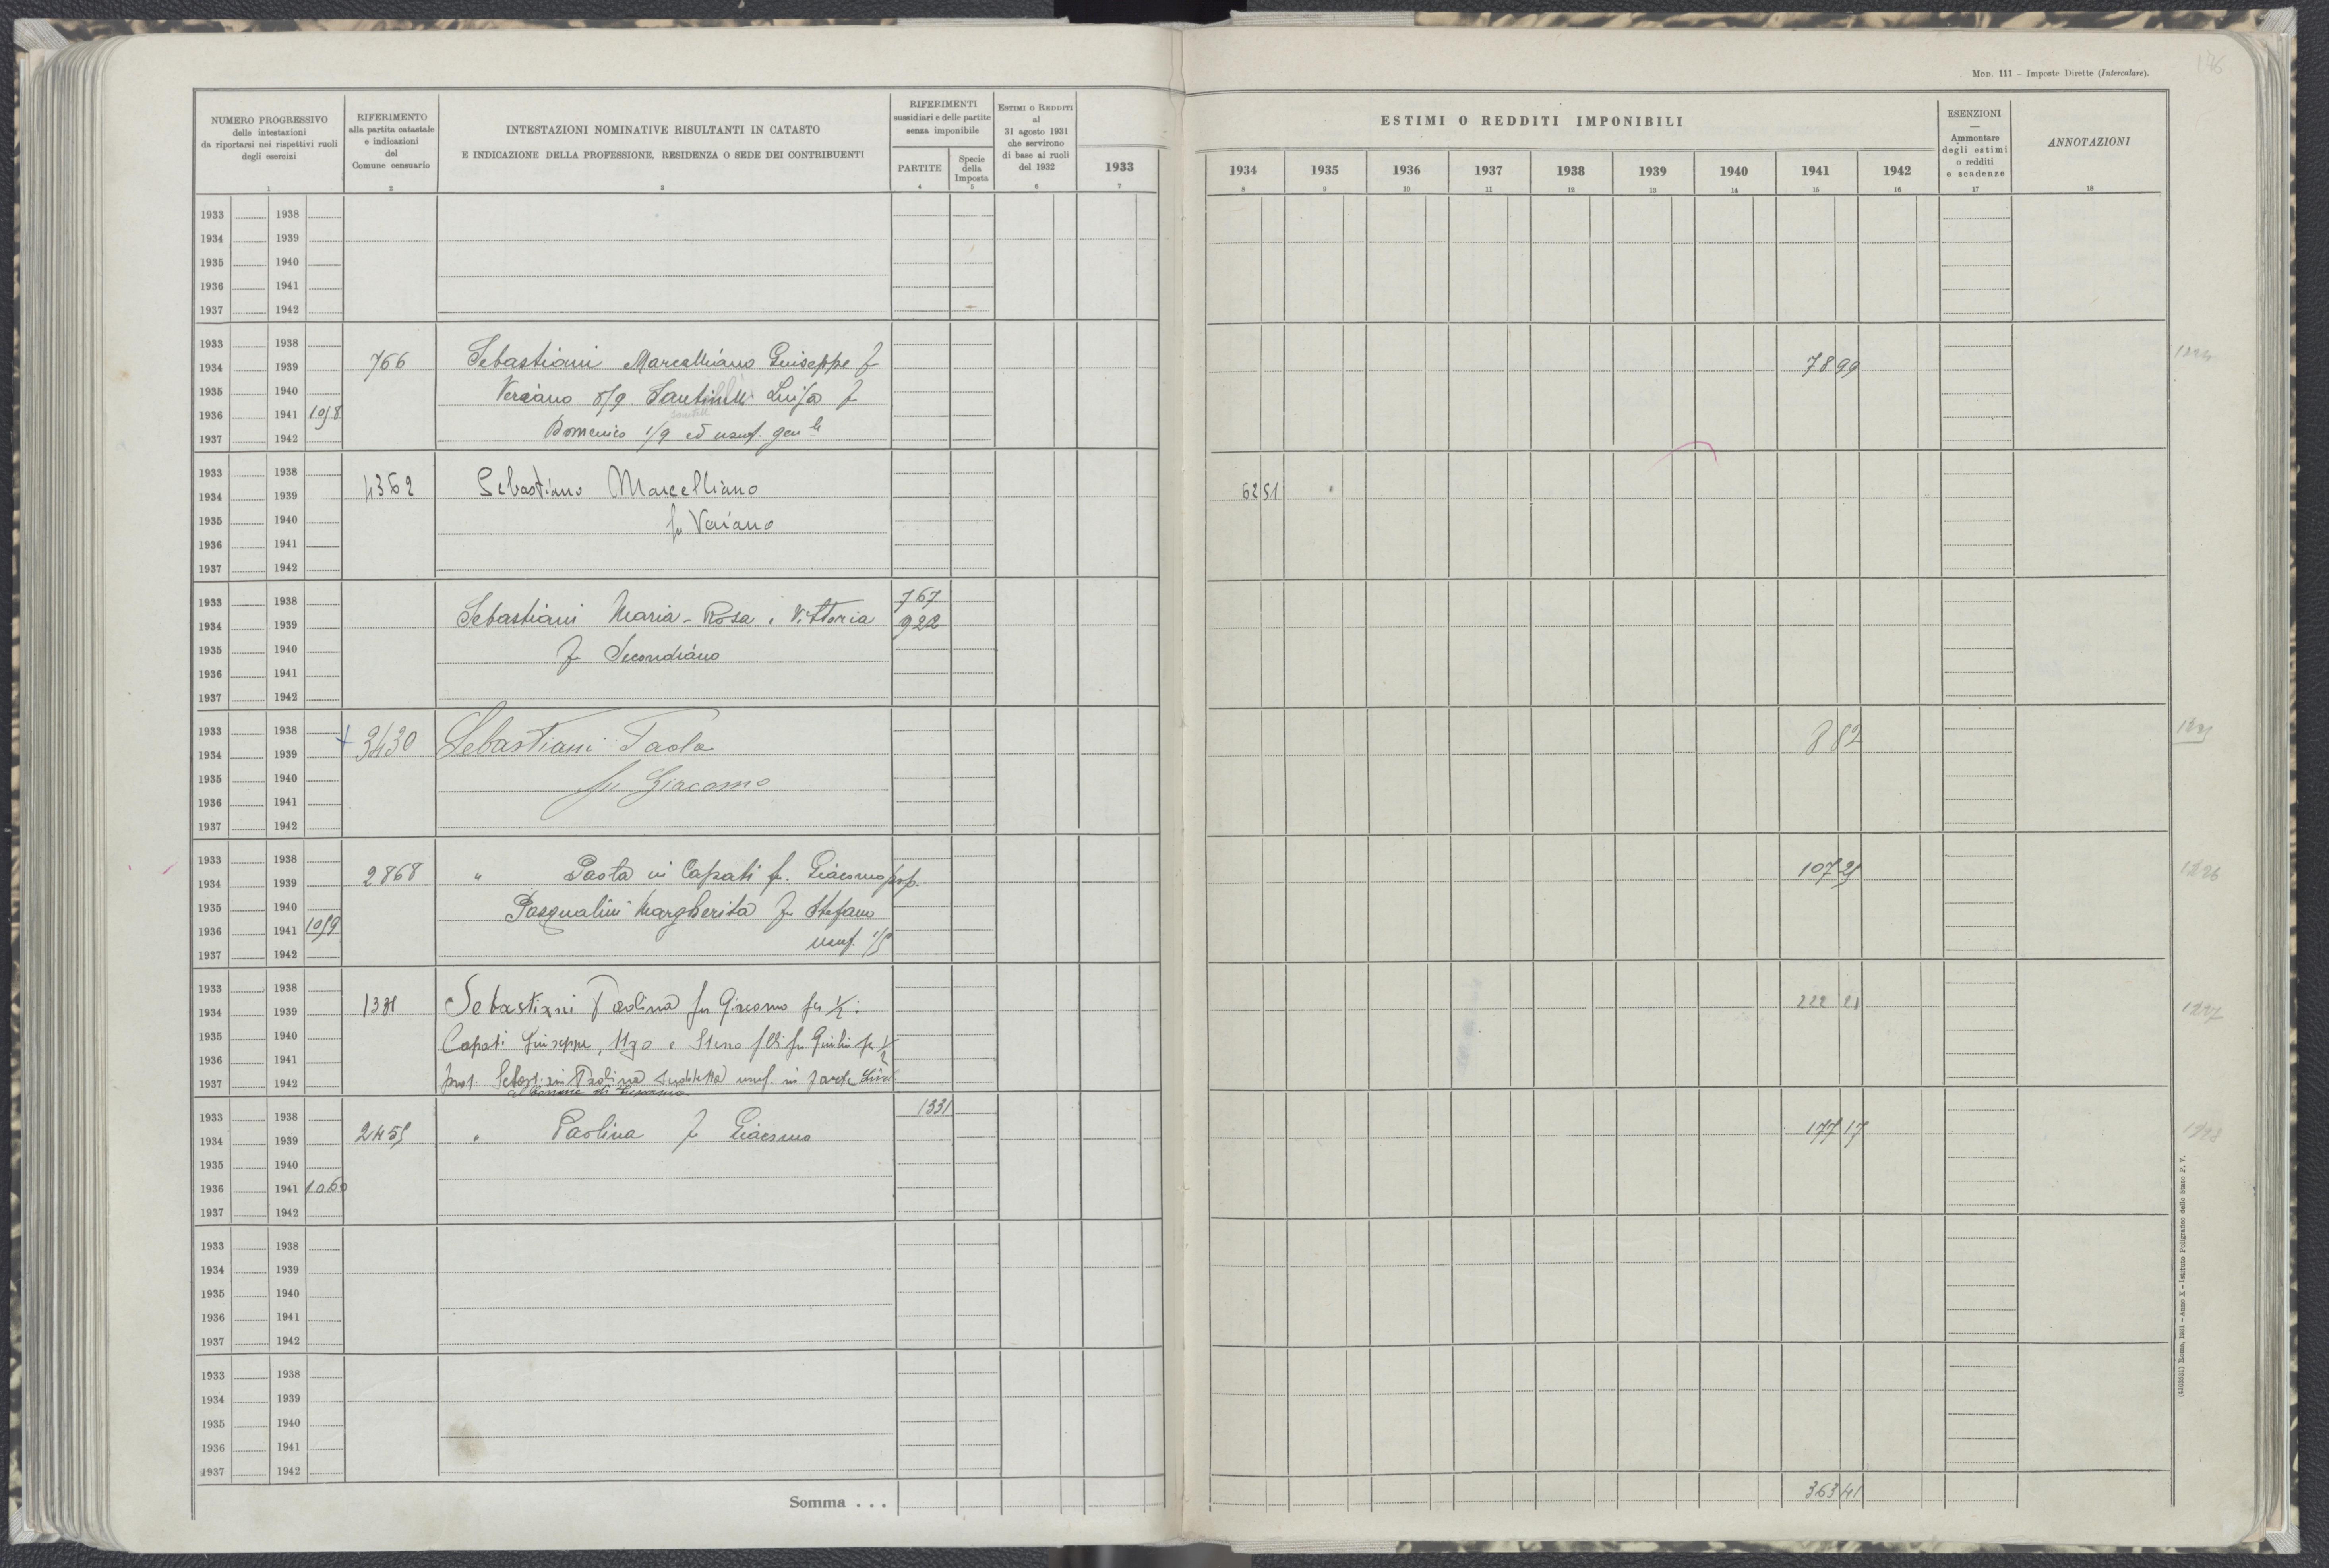 Mon. 111 - Imposte Dirette (Intercalare).
176
NUMERO PROGRESSIVO
delle intestazioni
da riportarsi nei rispettivi ruoli
degli esercizi
1
RIFERIMENTO
alla partita catastale
e indicazioni
del
Comune censuario
2
INTESTAZIONI NOMINATIVE RISULTANTI IN CATASTO
E INDICAZIONE DELLA PROFESSIONE, RESIDENZA O SEDE DEI CONTRIBUENTI
3
RIFERIMENTI
sussidiari e delle partite
senza imponibile
PARTITE
4
Specie
della
Imposta
5
ESTIMI O REDDITI
al
31 agosto 1931
che servirono
di base ai ruoli
del 1932
6
1933
7
ESTIMI O REDDITI IMPONIBILI
1934 1935 1936 1937 1938 1939 1940 1941 1942
8 9 10 11 12 13 14 15 16
ESENZIONI
—
Ammontare
degli estimi
o redditi
e scadenze
17
ANNOTAZIONI
18
1933 1938
1934 1939
1935 1940
1936 1941
1937 1942
1933 1938
1934 1939 766 Sebastiani Marcelliano Giuseppe fu 78 99
1935 1940 Veriano 8/9 Santinelli Luisa fu
1936 1941 1058
1937 1942 Domenico 1/9 ed usuf. gen le
1933 1938
1934 1939 4362 Sebastiano Marcelliano 62 51
1935 1940 fu Variano
1936 1941
1937 1942
1933 1938 767
1934 1939 Sebastiani Maria - Rosa e Vittoria 922
1935 1940 fu Secondiano
1936 1941
1937 1942
1933 1938
1934 1939 3430 Sebastiani Paola 8 82
1935 1940 fu Giacomo
1936 1941
1937 1942
1933 1938
1934 1939 2868 " Paola in Capati fu. Giacomo prop. 107 25 1226
1935 1940 Pasqualini Margherita fu Stefano
1936 1941 1059
1937 1942 usuf. 1/3
1933 1938
1934 1939 1331 Sebastiani Paolina fu Giacomo per 1/2 : 222 21 1227
1935 1940 Capati Giuseppe, Ugo e fu Giulio per 1/2
1936 1941
1937 1942 prop. Sebastiani Paolina suddetta usuf. in parte
1933 1938 1331
1934 1939 2455 " Paolina fu Giacomo 177 17 1228
1935 1940
1936 1941 1060
1937 1942
1933 1938
1934 1939
1935 1940
1936 1941
1937 1942
1933 1938
1934 1939
1935 1940
1936 1941
1937 1942
Somma . . . 363 41
(4103531) Roma, 1931 - Anno X - Istituto Poligrafico dello Stato P. V.